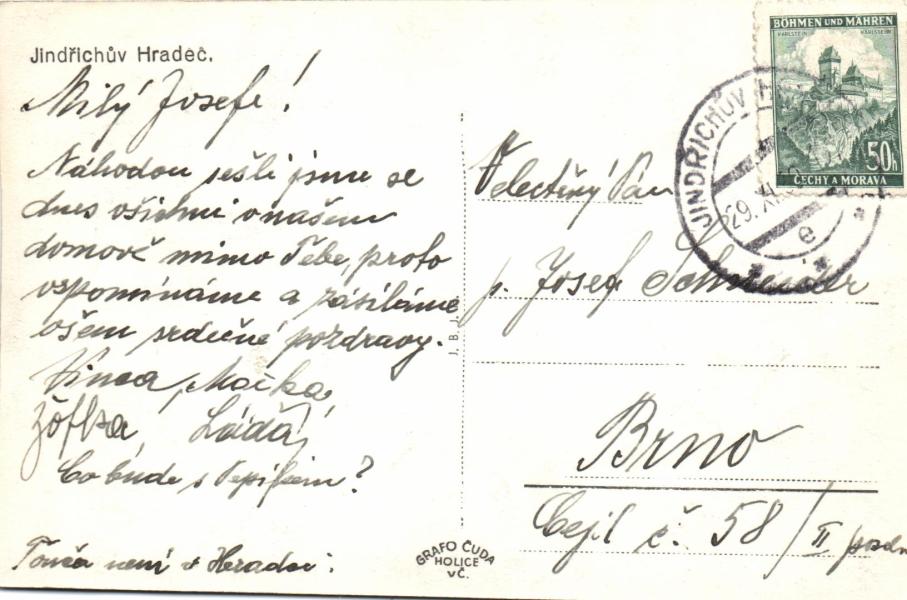 Jindřichův Hradec.
Milý Josefe!
Náhodou sešli jsme se
dnes všichni v našem
domově mimo Tebe, proto
vzpomínáme a zasíláme
všem srdečné pozdravy.
Vinca, Mačka
Žofka, Láďa
Co bude s Pepíkem?
Tonča není v Hradci.
BÖHMEN UND MÄHREN
KARLSTEIN KARLŠTEJN
50h
ČECHY A MORAVA
JINDŘICHŮV H
29. XI.
e
Velectěný Pán
p. Josef
Brno
Cejl č. 58/II
J. B. J.
GRAFO ČUDA
HOLICE
VČ.